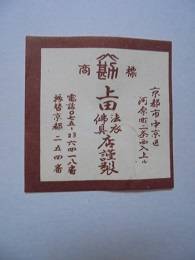 商標
京都市中京区
河原町二条西入上ル
上田法衣佛具店謹製
電話〇七五・231六四一八番
振替京都二五四番